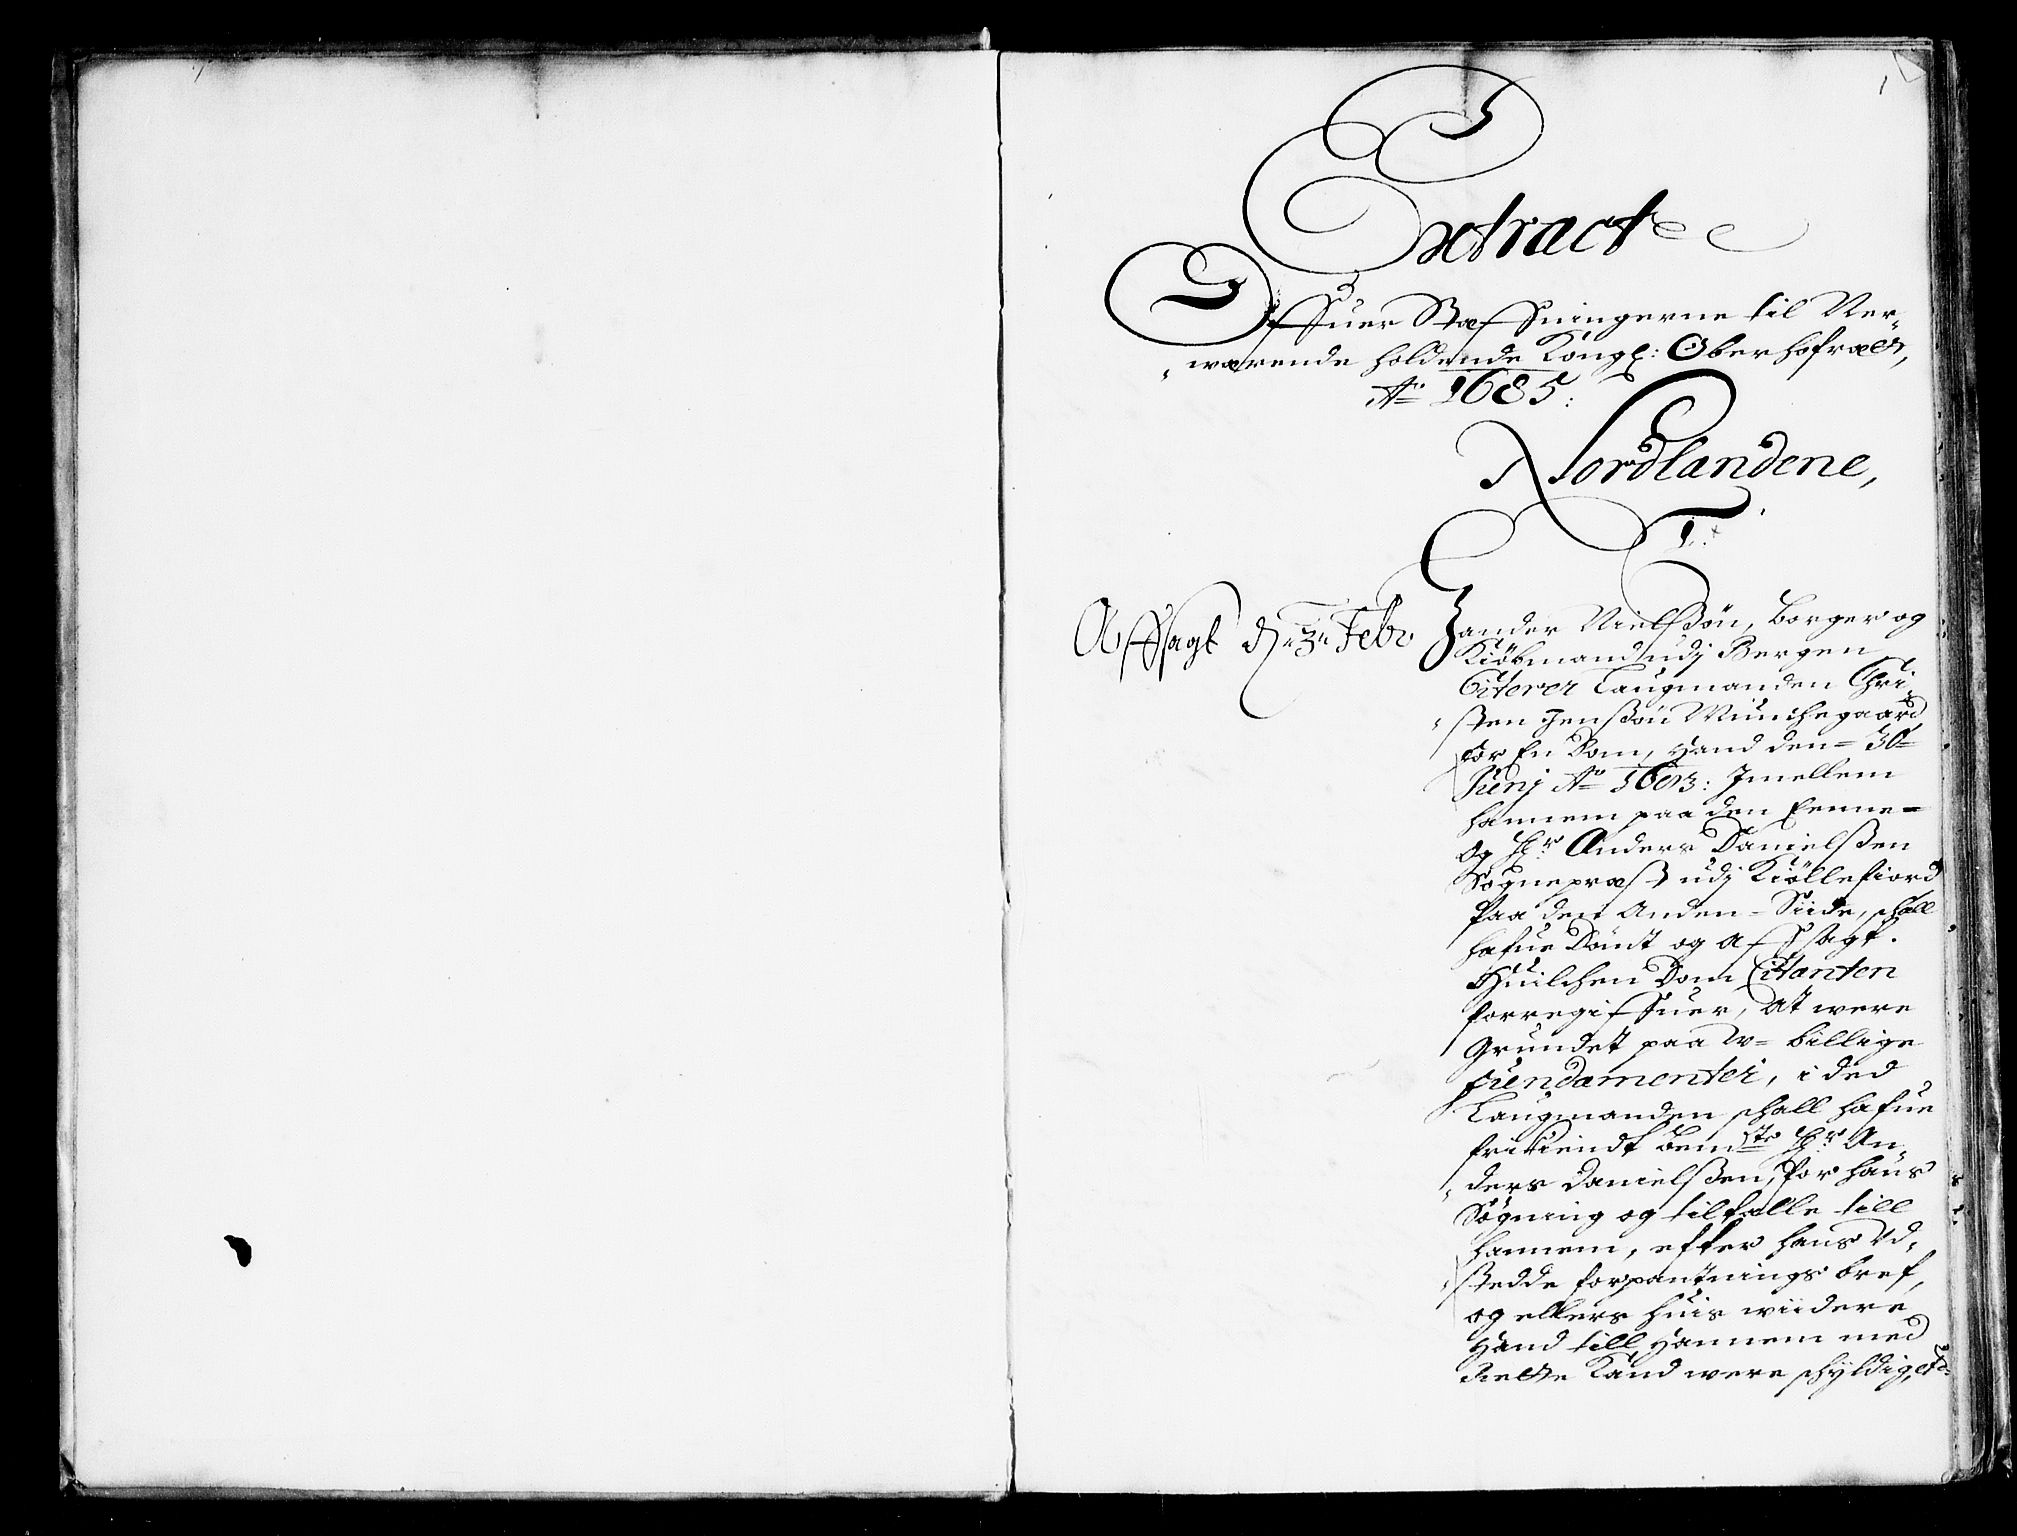 1
Extract
Offuer Steffningerne til Ner-
„warende holdende Kongl: Oberhofræt,
Aō 1685:
Nordlandene,
1.
Affsagt d. 3. Febr
Zander Nielssøn, borger og
Kiøbmand udj Bergen
Citerer Laugmanden Chri„
„sten Jenssøn Munchegaard,
for En Dom, hand den = 30te
Junj Aō 1683: Jmellem
hannem paa den Eenne =
og Hr Anders Danielssen
Sognepræst udj Kiøllefiord
Paa den Anden = Siide, schall
hafue Dømt og affsagt.
Huilchen Dom Citanten
forregiffuer, At were
Grundet paa U= billige
fundamenter, i ded
Laugmanden schall hafue
frikiendt bemte Hr An„
„ders Danielssen, for hans
Søgning og tiltalle till
hannem, efter hans Ud„
„stedde forpantnings bref,
og ellers huis wiidere
Hand till Hannem med
Rætte Kand were schyldig,